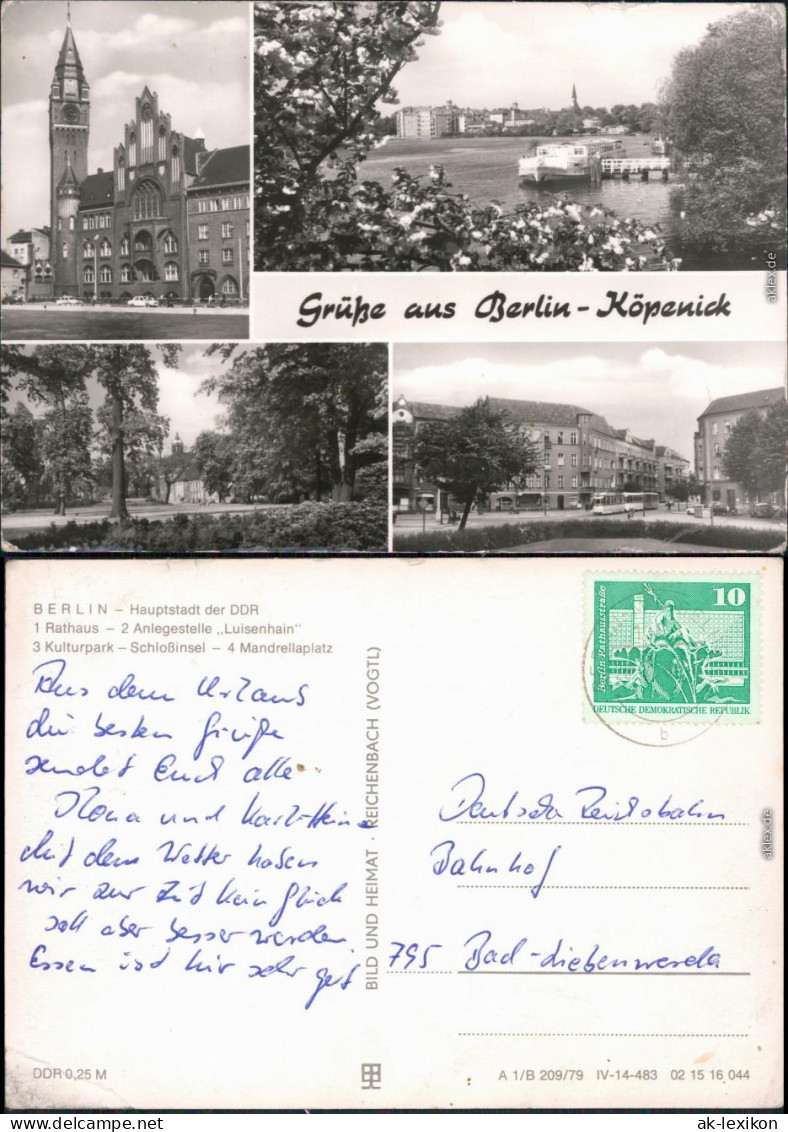 Grüße aus Berlin-Köpenick
aklex.de
BERLIN – Hauptstadt der DDR
1 Rathaus – 2 Anlegestelle „Luisenhain"
3 Kulturpark – Schloßinsel – 4 Mandrellaplatz
Aus dem Urlaub
die besten Grüße
sendet Euch alle
Mona und Karl-Heinz
Mit dem Wetter haben
wir zur Zeit kein Glück
soll aber besser werden
Essen ist hier sehr gut
BILD UND HEIMAT · REICHENBACH (VOGTL)
10
Berlin-Rathausstraße
DEUTSCHE DEMOKRATISCHE REPUBLIK
b
Deutsche Reichsbahn
Bahnhof
795 Bad-Liebenwerda
aklex.de
DDR 0,25 M
A 1/B 209/79 IV-14-483 02 15 16 044
ak-lexikon